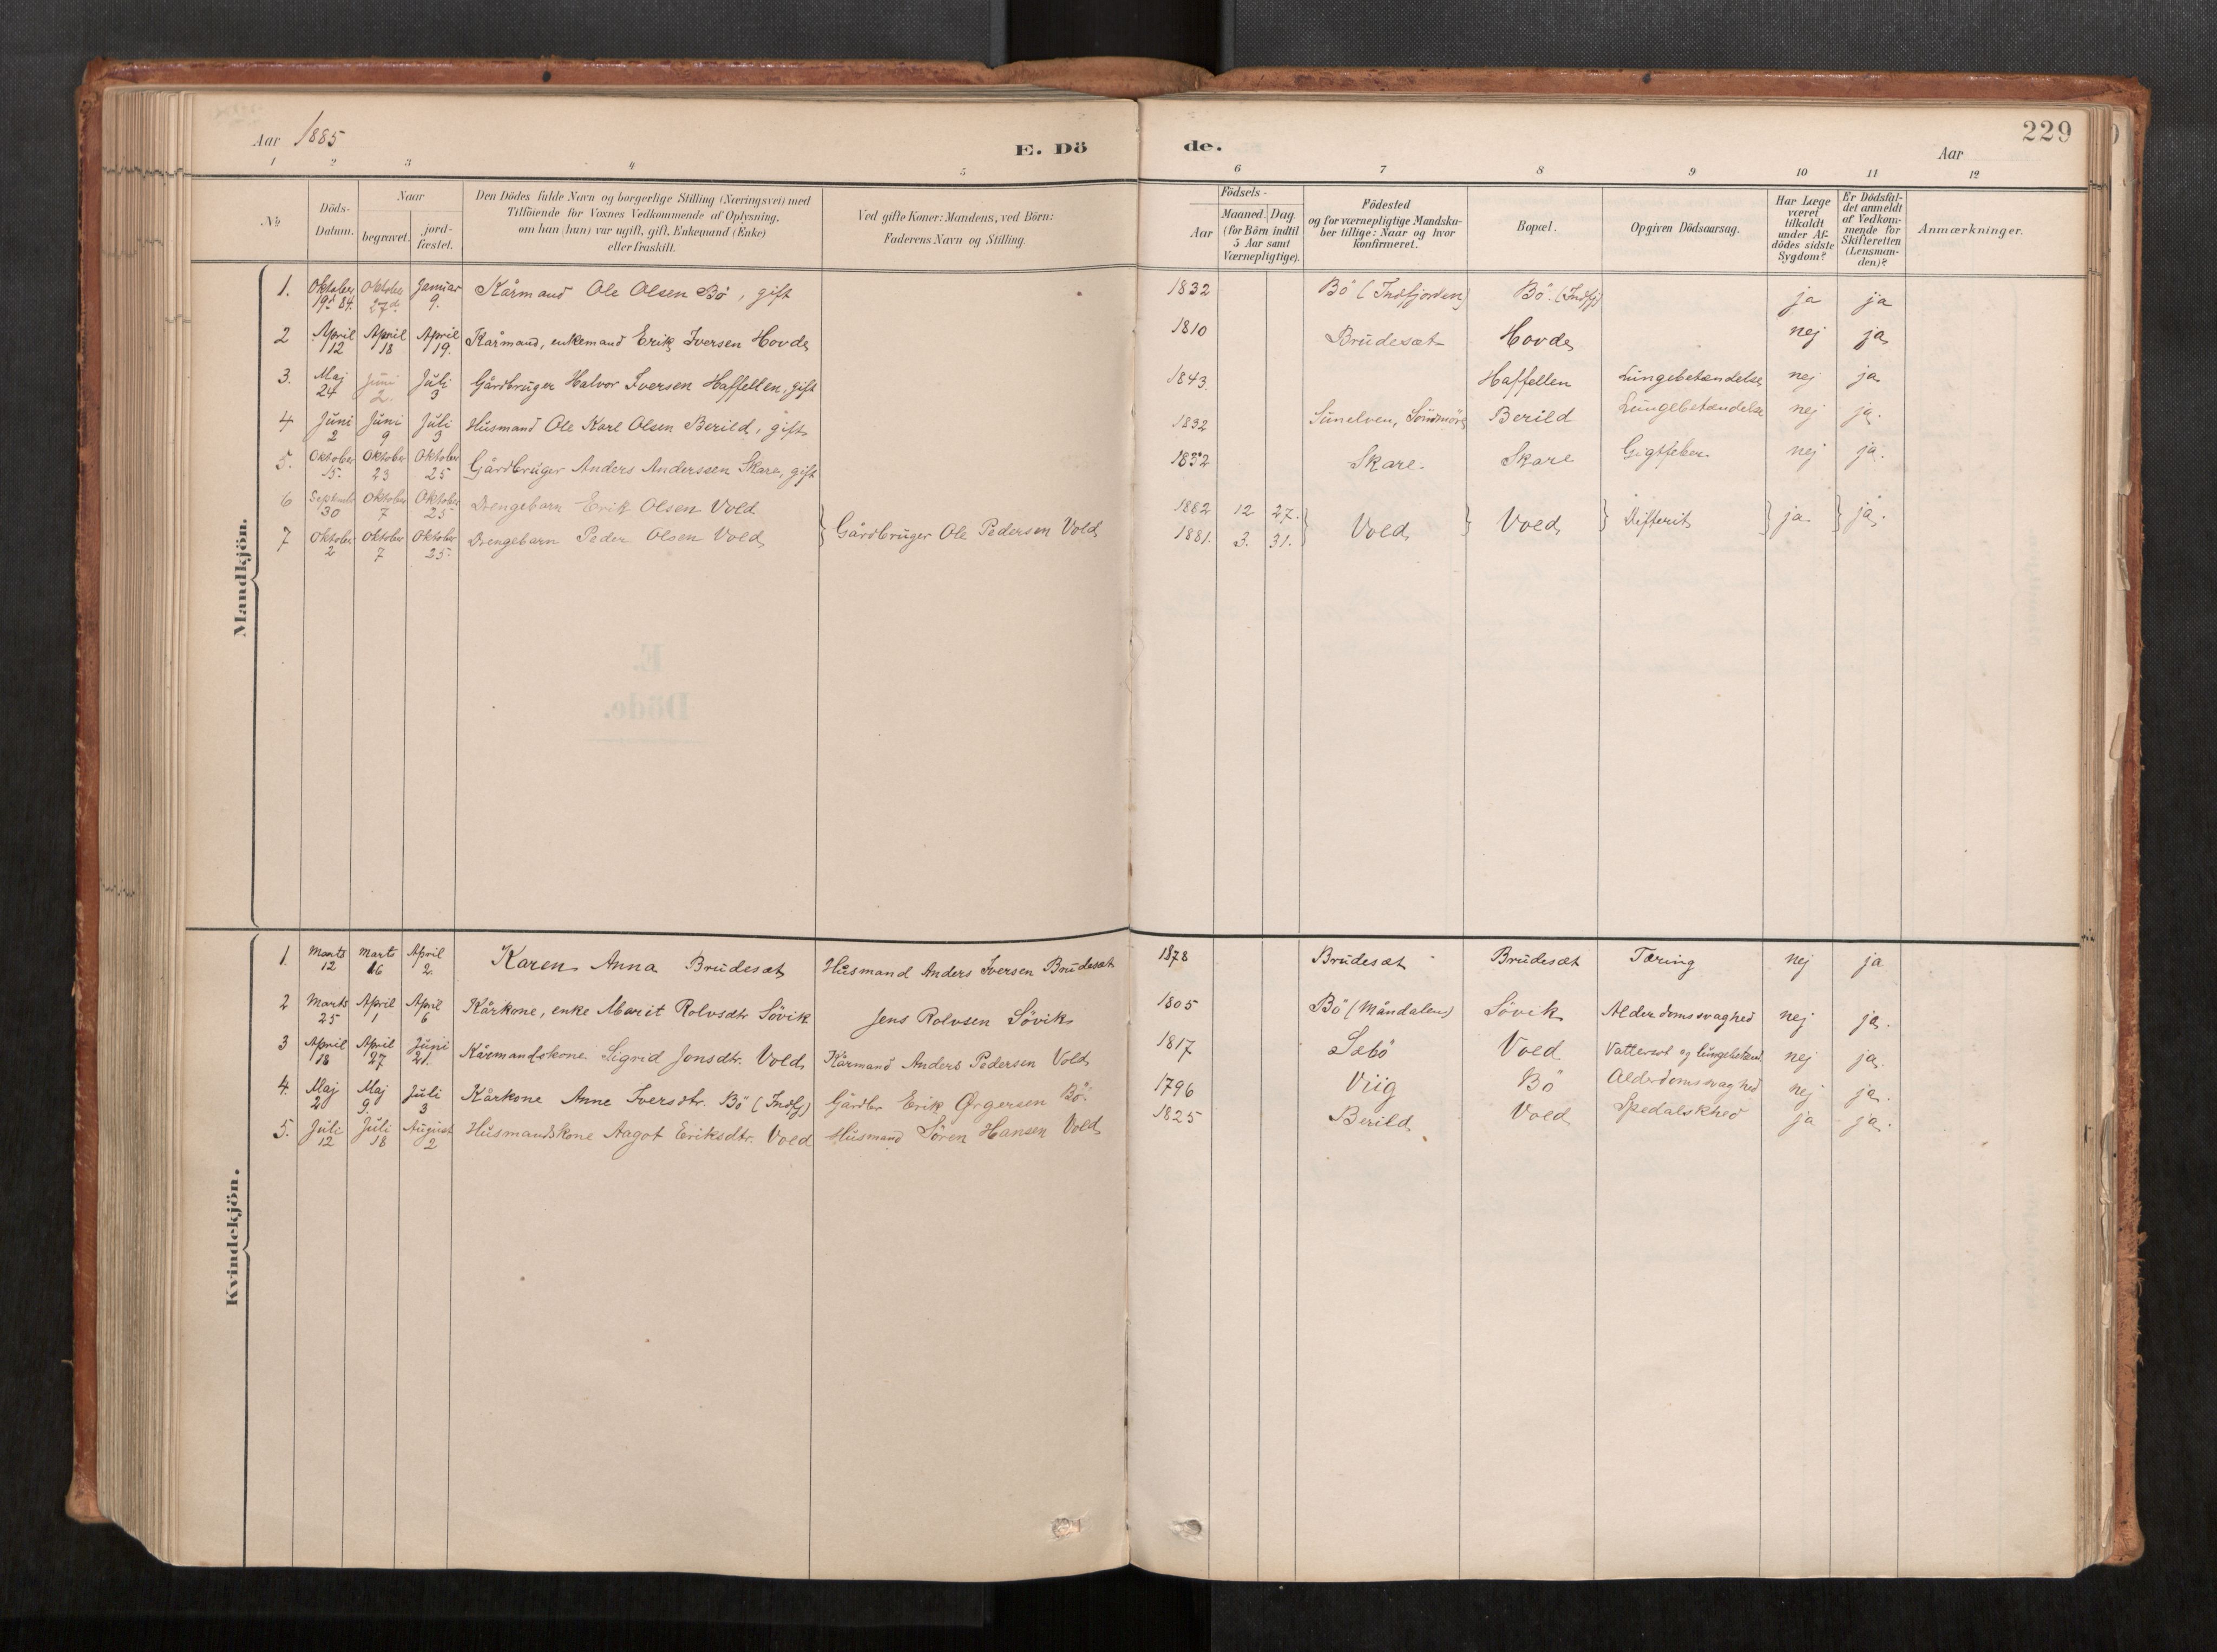 Aar 1885
E. Dö de.
229
Aar
1 2 3 4 5 6 7 8 9 10 11 12
No
Döds-Datum.
Naar
begravet.
jord-fæstet.
Den Dödes fulde Navn og borgerlige Stilling (Næringsvei) med
Tilföiende for Voxnes Vedkommende af Oplysning,
om han (hun) var ugift, gift, Enkemand (Enke)
eller fraskilt.
Ved gifte Koner: Mandens, ved Börn:
Faderens Navn og Stilling.
Födsels-
Aar
Maaned. Dag.
(for Börn indtil
5 Aar samt
Værnepligtige).
Födested
og for værnepligtige Mandska-
ber tillige: Naar og hvor
konfirmeret.
Bopæl.
Opgiven Dödsaarsag.
Har Læge
været
tilkaldt
under Af-
dödes sidste
Sygdom?
Er Dödsfal-
det anmeldt
af Vedkom-
mende for
Skifteretten
(Lensman-
den)?
Anmærkninger.
Mandkjön.
1. Oktober 19d 84. Oktober 27d. Januar 9. Kårmand Ole Olsen Bö, gift 1832 Bö (Indfjorden) Bö. (Indfj) ja ja
2 April 12 April 18 April 19. Kårmand, enkemand Erik Iversen Hovde 1810 Brudesæt Hovde nej ja
3. Maj 24 Juni 2. Juli 3 Gårdbruger Halvor Iversen Haffellen, gift 1843. Haffellen Lungebetændelse nej ja
4 Juni 2 Juni 9 Juli 3 Husmand Ole Karl Olsen Berild, gift 1832 Sunelven, Söndmöre Berild Lungebetændelse nej ja.
5. Oktober 15. Oktober 23 Oktober 25 Gårdbruger Anders Anderssen Skare, gift 1832 Skare. Skare Gigtfeber nej ja.
6 Septemb 30 Oktober 7 Oktober 25 Drengebarn Erik Olsen Vold 1882 12 27.
7 Oktober 2 Oktober 7 Oktober 25. Drengebarn Peder Olsen Vold } Gårdbruger Ole Pedersen Vold 1881. 3. 31. } Vold } Vold } Difterit } ja } ja.
E.
Döde.
Kvindekjön.
1. Marts 12 Marts 16 April 2. Karen Anna Brudesæt Husmand Anders Iversen Brudesæt 1878 Brudesæt Brudesæt Tæring nej ja
2 Marts 25 April 1 April 6 Kårkone, enke Marit Rolvsdtr Sövik Jens Rolvsen Sövik 1805 Bö (Måndalen) Sövik Alderdomssvaghed nej ja.
3 April 18 April 27 Juni 21. Kårmandskone Sigrid Jonsdtr. Vold Kårmand Anders Pedersen Vold 1817 Sæbö Vold Vattersot og lungebetænd. nej ja.
4. Maj 2 Maj 9. Juli 3 Kårkone Anne Iversdtr. Bö (Indfj) Gårdbr Erik Ørgersen Bö. 1796 Viig Bö Alderdomssvaghed nej ja.
5. Juli 12 Juli 18 August 2 Husmandskone Aagot Eriksdtr. Vold Husmand Sören Hansen Vold 1825 Berild Vold Spedalskhed ja ja.